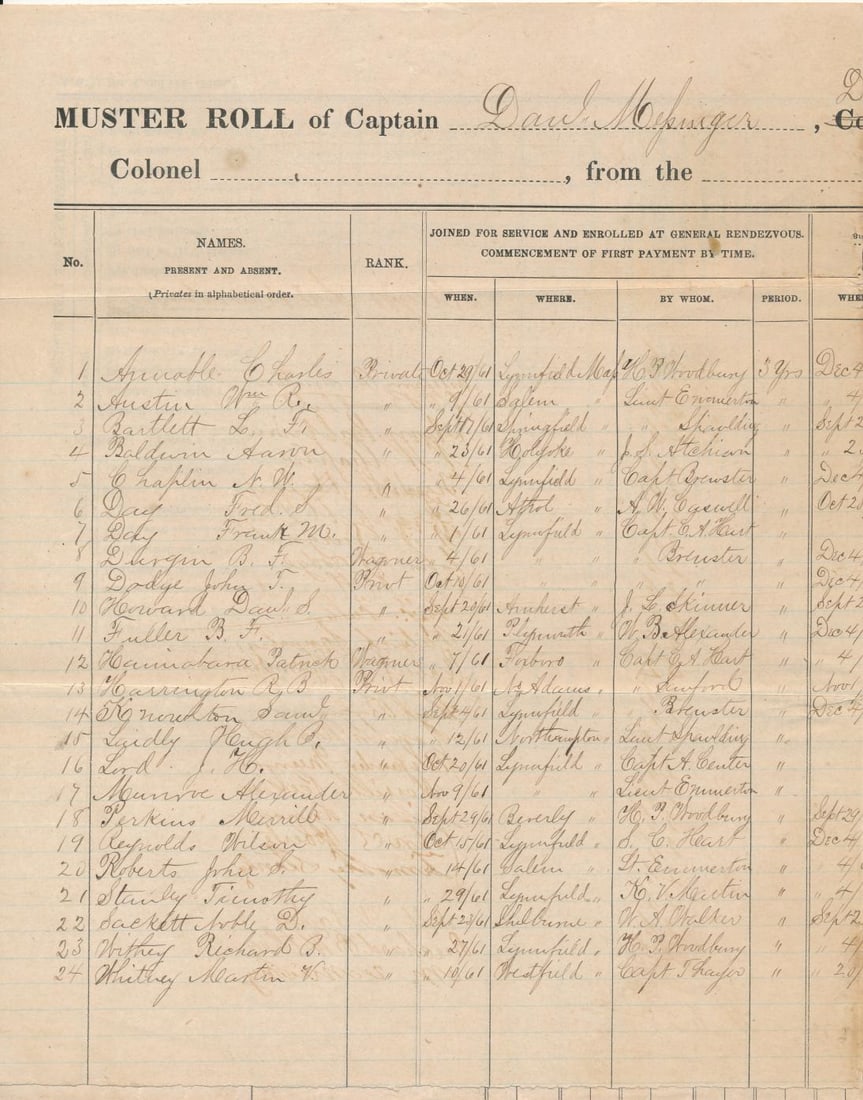 MUSTER ROLL of Captain Danl. Messinger , Co
Colonel , from the
No. NAMES. PRESENT AND ABSENT. (Privates in alphabetical order. RANK. JOINED FOR SERVICE AND ENROLLED AT GENERAL RENDEZVOUS. COMMENCEMENT OF FIRST PAYMENT BY TIME.
WHEN. WHERE. BY WHOM. PERIOD. WHE
1 Annable Charles Private Oct 29/61 Lynnfield Mass H. P. Woodbury 3 Yrs Dec 4
2 Austin Wm R. " " 9/61 Salem " Lieut Emmerton " " 4/
3 Bartlett L. F. " Sept 17/61 Springfield " " Spaulding " Sept 2
4 Baldwin Aaron " " 23/61 Holyoke " J. S. Atchison " " 2
5 Chaplin N. W. " " 4/61 Lynnfield " Capt Brewster " Dec 4
6 Day Fred. S " " 26/61 Athol " A. W. Caswell " Oct 20
7 Day Frank M. " " 1/61 Lynnfield " Capt C. A. Hart "
8 Durgin B. F. Wagner " 4/61 " " " Brewster " Dec 4
9 Dodge John T. Privt Oct /61 " " " " " Dec 4
10 Howard Danl. S. " Sept 20/61 Amherst " J. L. Skinner " Sept 2
11 Fuller B. F. " " 21/61 Plymouth " W. B. Alexander " Dec 4/
12 Hannabara Patrick Wagner " 7/61 Foxboro " Capt C. A. Hart " " 4/
13 Harrington R. B Privt Nov 1/61 No. Adams " " Sanford " Nov 1
14 Knowlton Saml " Sept 4/61 Lynnfield " " Brewster " Dec 4
15 Lindly Hugh B. " " 12/61 Northampton " Lieut Spaulding "
16 Lord J. H. " Oct 20/61 Lynnfield " Capt A. Center "
17 Munroe Alexander " Nov 9/61 " " Lieut Emmerton "
18 Perkins Merrill " Sept 29/61 Beverly " H. P. Woodbury " Sept 29
19 Reynolds Wilson " Oct 15/61 Lynnfield " S. C. Hart " Dec 4
20 Roberts John S. " " 14/61 Salem " Lt. Emmerton " " 4/
21 Stanley Timothy " " 29/61 Lynnfield " K. V. Martin " " 4/
22 Sackett Noble D. " Sept 23/61 Shelburne " W. A. Walker " Sept 2
23 Withey Richard B. " " 27/61 Lynnfield " H. P. Woodbury " " 4
24 Whithey Martin V. " " 10/61 Westfield " Capt Thayer " " 20/